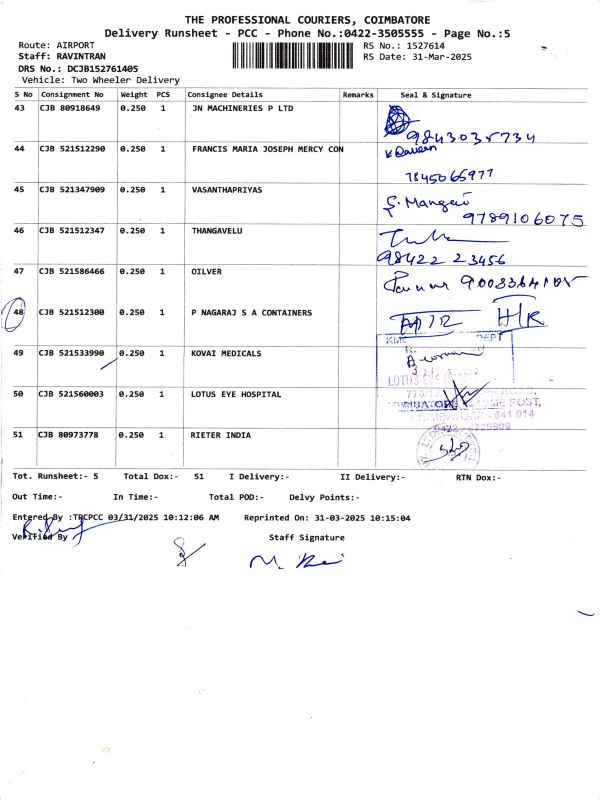 THE PROFESSIONAL COURIERS, COIMBATORE
Delivery Runsheet - PCC - Phone No.:0422-3505555 - Page No.:5
Route: AIRPORT RS No.: 1527614
Staff: RAVINTRAN RS Date: 31-Mar-2025
DRS No.: DCJB152761405
Vehicle: Two Wheeler Delivery
S No Consignment No Weight PCS Consignee Details Remarks Seal & Signature
43 CJB 80918649 0.250 1 JN MACHINERIES P LTD
9843035734
44 CJB 521512290 0.250 1 FRANCIS MARIA JOSEPH MERCY CON
7845065977
45 CJB 521347909 0.250 1 VASANTHAPRIYAS
9789106075
46 CJB 521512347 0.250 1 THANGAVELU
98422 23456
47 CJB 521586466 0.250 1 OILVER
48 CJB 521512300 0.250 1 P NAGARAJ S A CONTAINERS H/R
49 CJB 521533990 0.250 1 KOVAI MEDICALS
50 CJB 521560003 0.250 1 LOTUS EYE HOSPITAL
51 CJB 80973778 0.250 1 RIETER INDIA
Tot. Runsheet:- 5 Total Dox:- 51 I Delivery:- II Delivery:- RTN Dox:-
Out Time:- In Time:- Total POD:- Delvy Points:-
Entered By :TRCPCC 03/31/2025 10:12:06 AM Reprinted On: 31-03-2025 10:15:04
Verified By Staff Signature